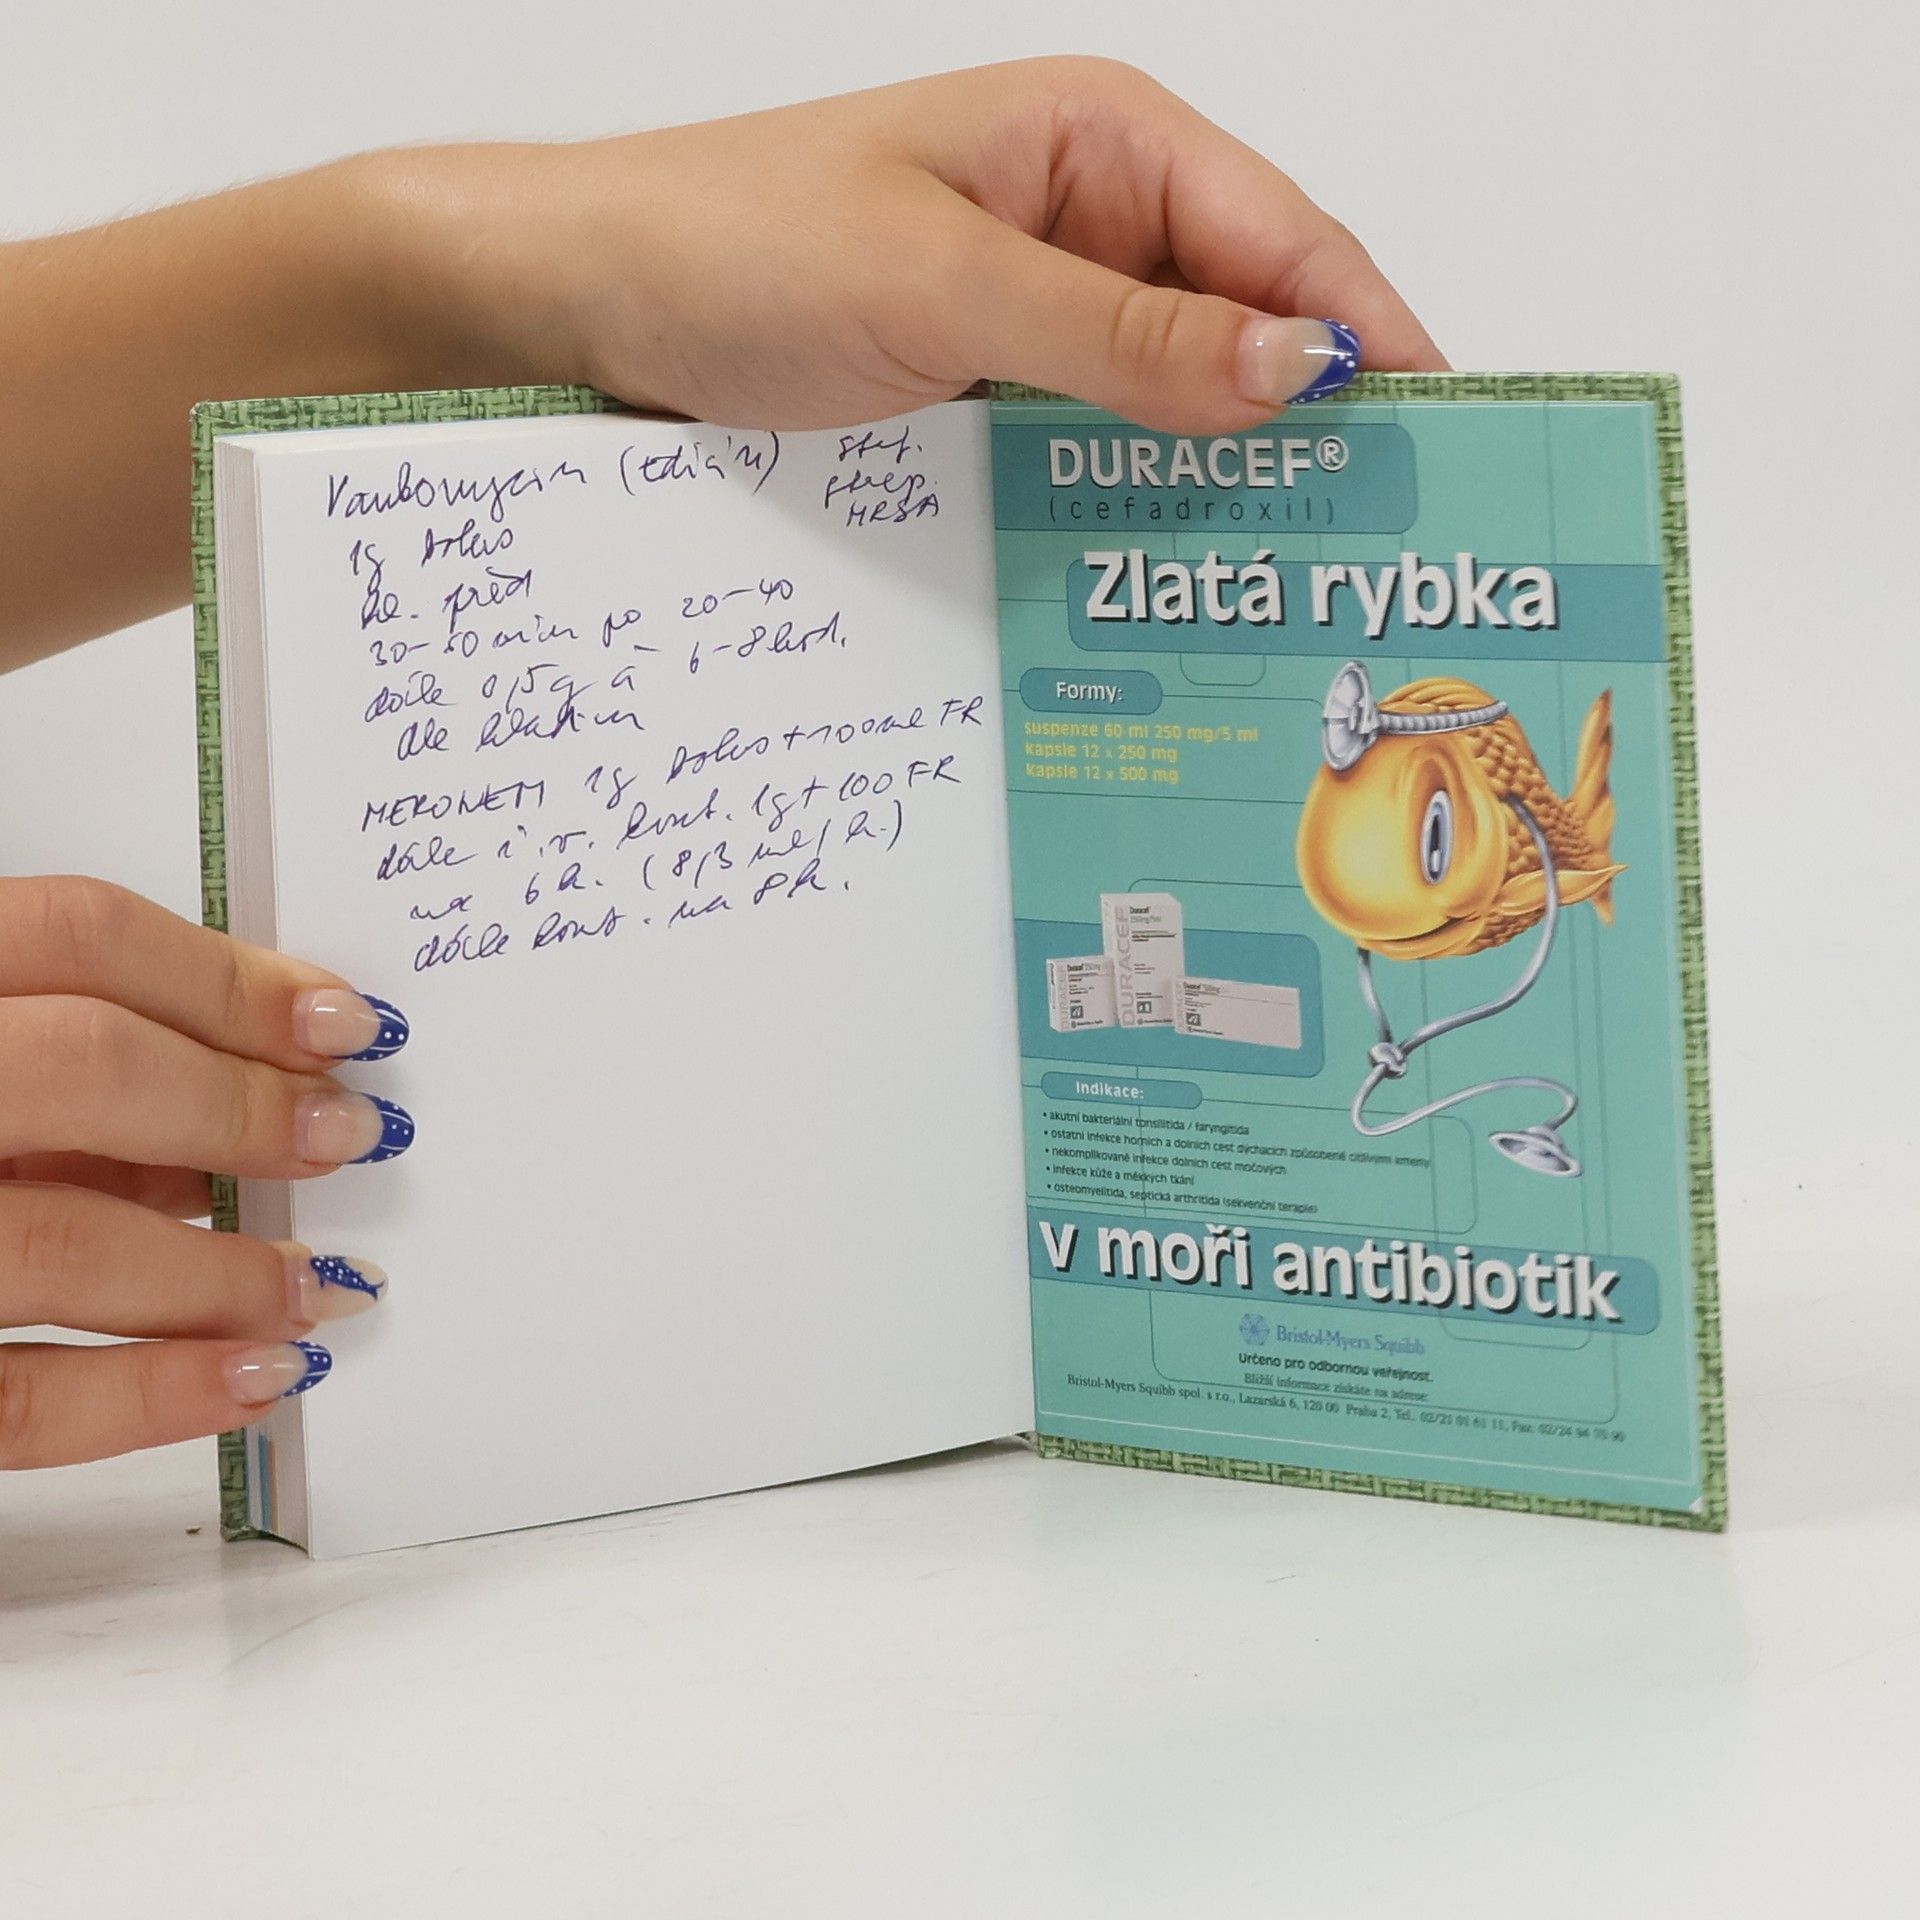 Vankomycin (Edicin)
staf.
strep.
MRSA
1g bolus
hl. před
30-50 min po 20-40
dále 0,5g à 6-8hod.
dle hladin
MERONEM 1g bolus + 100ml FR
dále i.v. kont. 1g + 100 FR
na 6h. (8,3 ml/h.)
dále kont. na 8h.
DURACEF®
(cefadroxil)
Zlatá rybka
Formy:
suspenze 60 ml 250 mg/5 ml
kapsle 12 x 250 mg
kapsle 12 x 500 mg
Duracef
DURACEF
Indikace:
• akutní bakteriální tonsilitida / faryngitida
• ostatní infekce horních a dolních cest dýchacích způsobené citlivými kmeny
• nekomplikované infekce dolních cest močových
• infekce kůže a měkkých tkání
• osteomyelitida, septická arthritida (sekvenční terapie)
v moři antibiotik
Bristol-Myers Squibb
Určeno pro odbornou veřejnost.
Bližší informace získáte na adrese:
Bristol-Myers Squibb spol. s r.o., Lazarská 6, 120 00 Praha 2, Tel.: Fax: